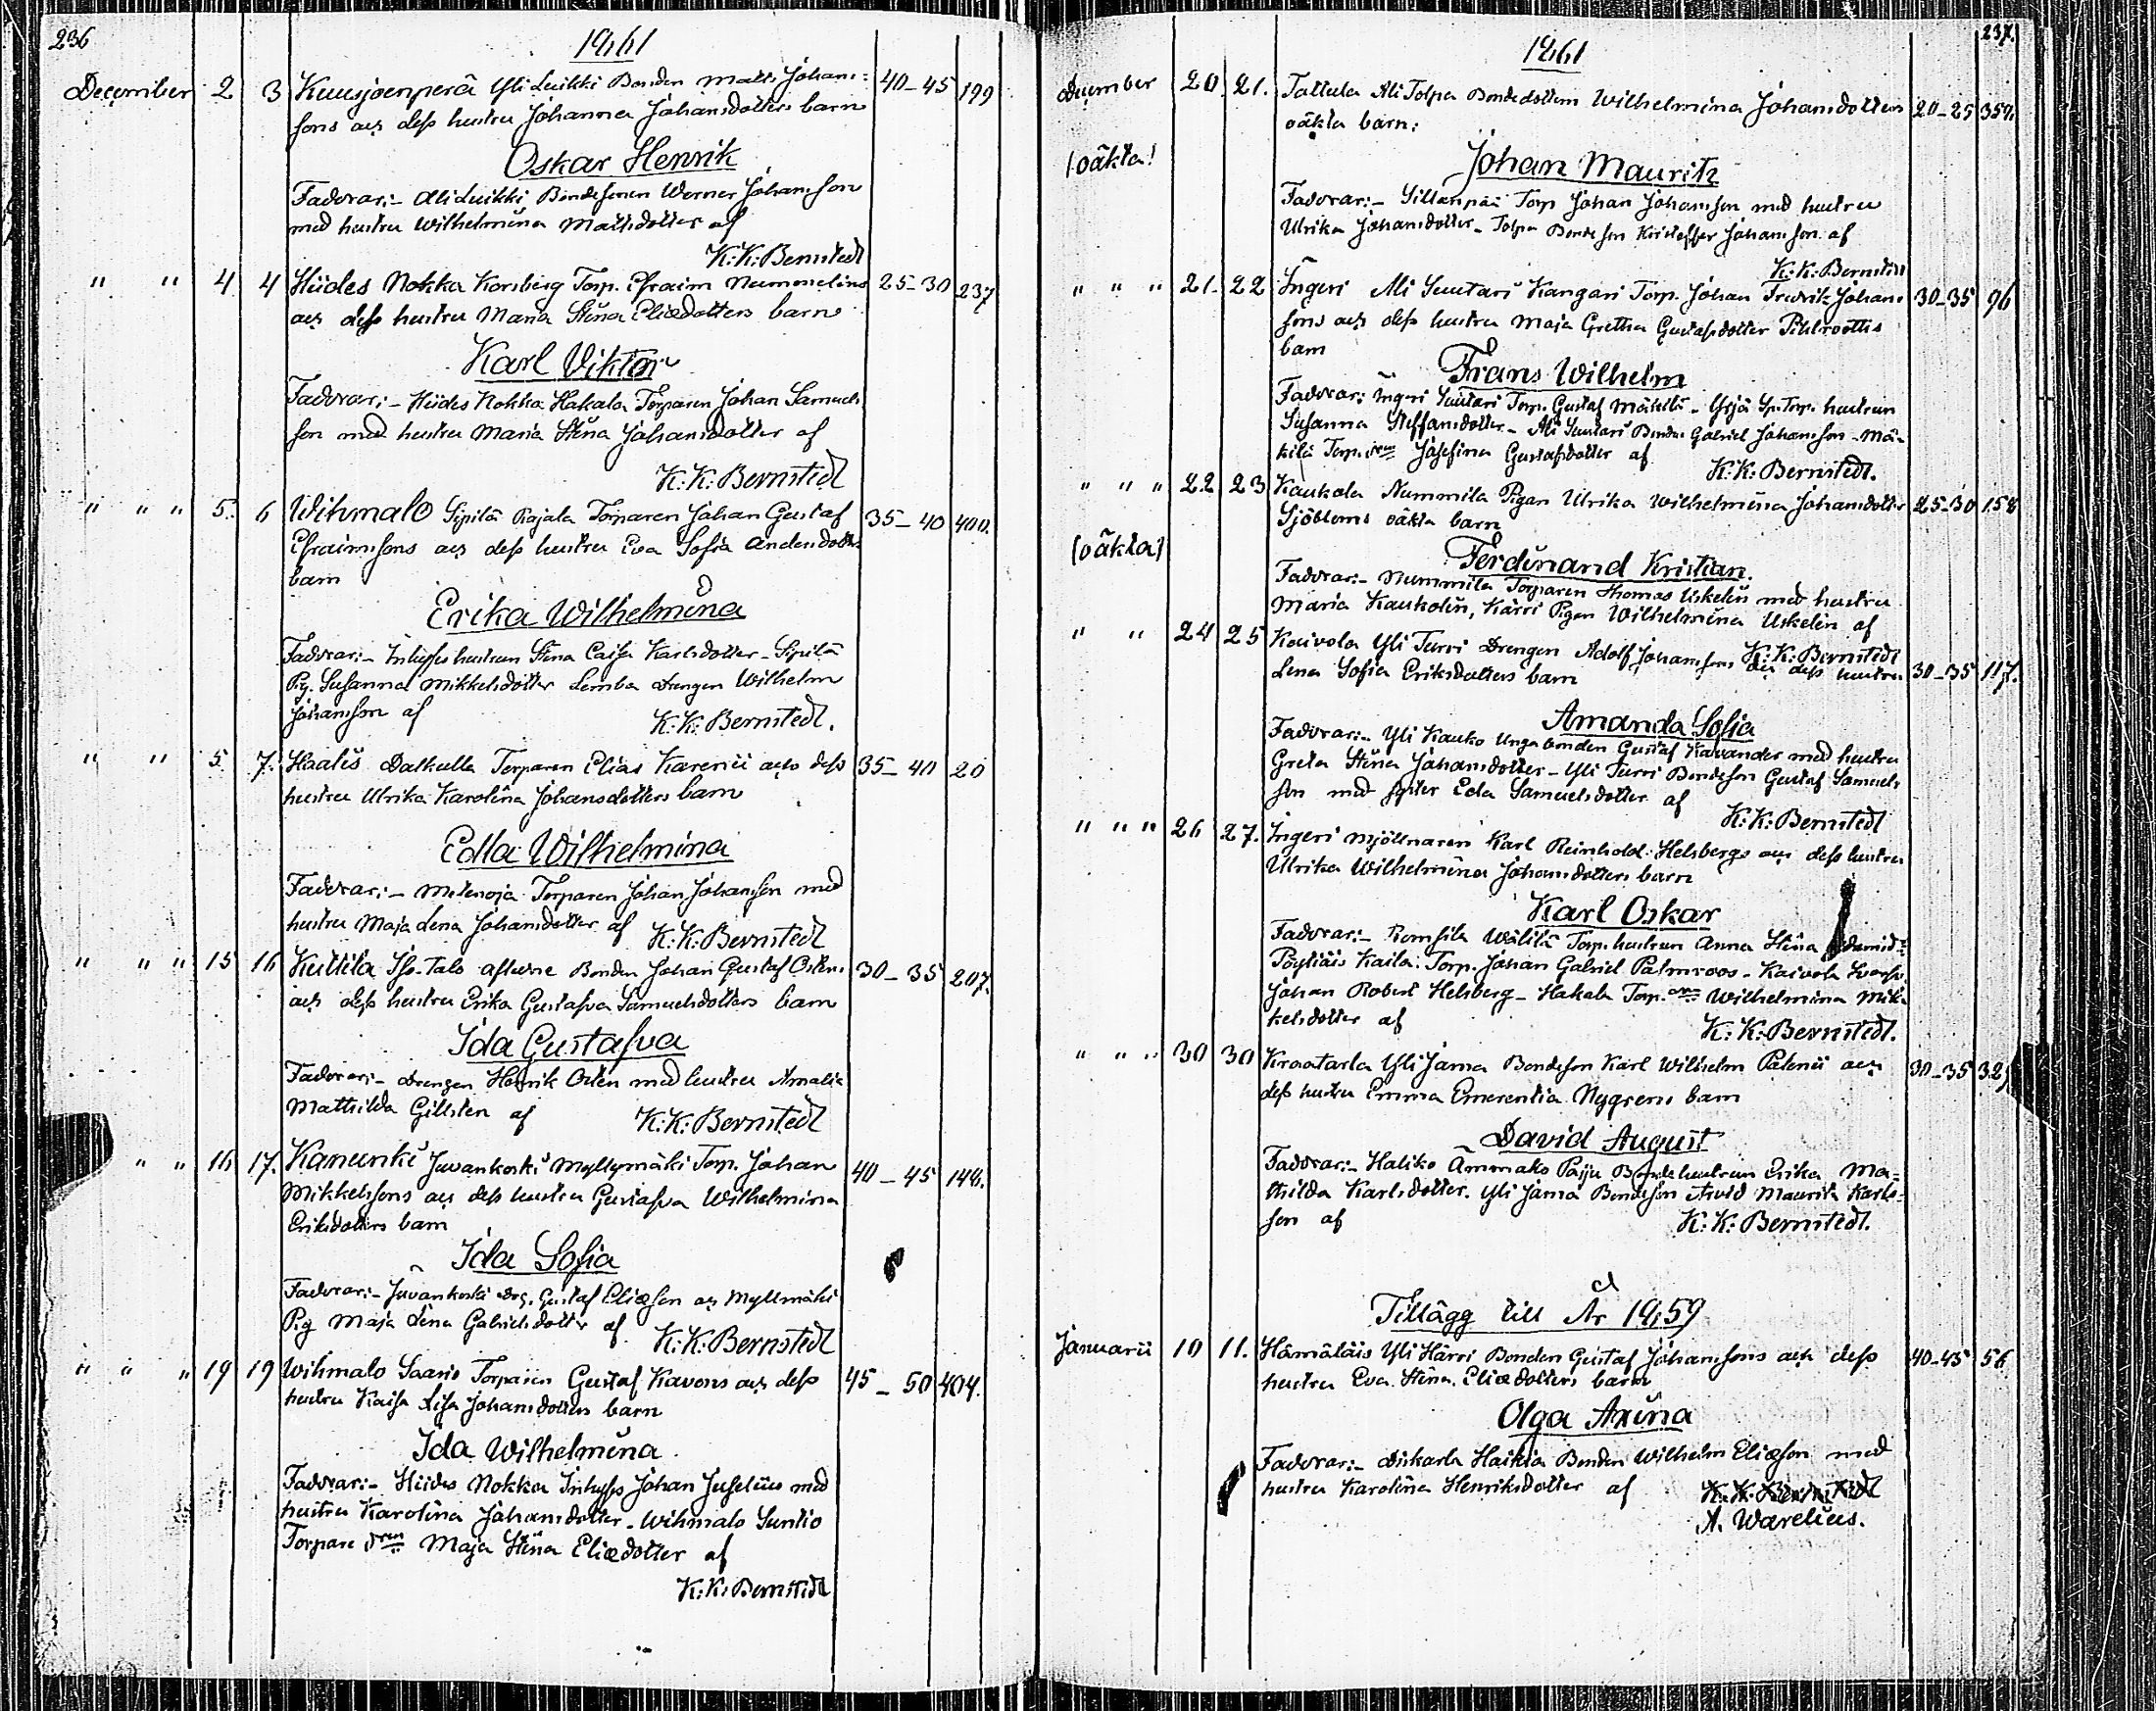 236
1861
December 2 3 Kuusjoenperä Yli Luikki Bonden Matts Johans= 40-45 199
sons och dess hustru Johanna Johansdotters barn
Oskar Henrik
Faddrar:- Ali Luikki Bondesonen Werner Johansson
med hustru Wilhelmina Mattsdotter af
K:K:Bernstedt
" " 4 4 Hiides Nokka Korsberg Torp. Efraim Nummelins 25-30 237
och dess hustru Maria Stina Eliædotters barn
Karl Viktor
Faddrar:- Hiides Nokka Hakala Torparen Johan Samuels
son med hustru Maria Stina Johansdotter af
K:K:Bernstedt
" " " 5. 6 Wihmalo Sipilä Rajala Torparen Johan Gustaf 35-40 400.
Efraimssons och dess hustru Eva Sofia Andersdotters
barn
Erika Wilhelmina
Faddrar:- Inhyses hustrun Stina Caisa Karlsdotter - Sipilä
Pig. Susanna Mikkelsdotter Lemba Drengen Wilhelm
Johansson af
K:K:Bernstedt.
" " 5. 7. Haalis Dalkulla Torparen Elias Karenii och dess 35-40 20
hustru Ulrika Karolina Johansdotters barn
Edla Wilhelmina
Faddrar:- Metenoja Torparen Johan Johansson med
hustru Maja Lena Johansdotter af K:K:Bernstedt
" " " 15 16 Kuttila Iso-Talo aflidne Bonden Johan Gustaf Ostens 30-35 207.
och dess hustru Erika Gustafva Samuelsdotters barn
Ida Gustafva
Faddrar:- Drengen Henrik Osten med hustru Amalia
Mathilda Gillsten af K:K:Bernstedt
" " 16 17. Kanunki Juvankoski Myllymäki Torp. Johan 40-45 148.
Mikkelssons och dess hustru Gustafva Wilhelmina
Eriksdotters barn
Ida Sofia
Faddrar:- Juvankoski Drg. Gustaf Eliæson och Myllmäki
Pig Maja Lena Gabrielsdotter af K:K:Bernstedt
" " " 19 19 Wihmalo Saario Torparen Gustaf Kavons och dess 45-50 404.
hustru Kaisa Lisa Johansdotters barn
Ida Wilhelmina
Faddrar:- Hiides Nokka Inhyses Johan Juselius med
hustru Karolina Johansdotter - Wihmalo Suntio
Torpare dren Maja Stina Eliædotter af
K:K:Bernstedt
237.
1861
December 20 21. Tattula Ali Tolpa Bondedottern Wilhelmina Johansdotters 20-25 359.
oäkta barn:
(oäkta)
Johan Mauritz
Faddrar:- Sillanpää Torp Johan Johansson med hustru
Ulrika Johansdotter - Tolpa Bondeson Kristoffer Johansson af
K:K:Bernstedt
" " " 21. 22 Ingeri Ali Suutari Kangari Torp. Johan Fredrik Johans 30-35 96
sons och dess hustru Maja Gretha Gustafsdotter Pihlroottis
barn
Frans Wilhelm
Faddrar: Ingeri Suutari Torp. Gustaf Mäkilä - Yrjä Sp. Torp. hustrun
Susanna Steffansdotter - Ali Suutari Bonden Gabriel Johansson - Mä=
kilä Torp. dren Josefina Gustafsdotter af K:K:Bernstedt.
" " " 22 23 Kaukola Nummila Pigan Ulrika Wilhelmina Johansdotter 25-30 158
Sjöbloms oäkta barn
(oäkta)
Ferdinand Kristian.
Faddrar:- Nummila Torparen Thomas Uskelin med hustru
Maria Kaukolin, Kärri Pigan Wilhelmina Uskelin af
K:K:Bernstedt
" " 24 25 Kaivola Yli Turri Drengen Adolf Johanssons och dess hustru 30-35 117.
Lena Sofia Eriksdotters barn
Amanda Sofia
Faddrar:- Yli Kauko Unga bonden Gustaf Kavander med hustru
Greta Stina Johansdotter - Yli Turri Bondeson Gustaf Samuels
son med syster Eda Samuelsdotter af
K:K:Bernstedt
" " " 26 27. Ingeri Mjölnaren Karl Reinhold Helsbergs och dess hustru
Ulrika Wilhelmina Johansdotters barn
Karl Oskar
Faddrar:- Romsila Wälilä Torp. hustrun Anna Stina
Pöytiäis Kaila Torp. Johan Gabriel Palmroos - Kaivola
Johan Robert Helsberg - Hakala Torp. Wilhelmina Mik=
kelsdotter af K:K:Bernstedt.
" " " 30 30 Kraatarla Yli Jama Bondeson Karl Wilhelm Palenii och 30-35 32
dess hustru Emma Emerentia Nygrens barn
David August
Faddrar:- Haliko Ämmäko Paiju Bondehustrun Erika Ma=
thilda Karlsdotter. Yli Jama Bondeson Arvid Maurits Karls=
son af K:K:Bernstedt.
Tillägg till År 1859
Januarii 10 11. Hämäläis Yli Härri Bonden Gustaf Johanssons och dess 40-45 56
hustru Eva Stina Eliædotters barn
Olga Axina
Faddrar:- Diskarla Haikia Bonden Wilhelm Eliæson med
hustru Karolina Henriksdotter af K:K:Bernstedt
A. Warelius.